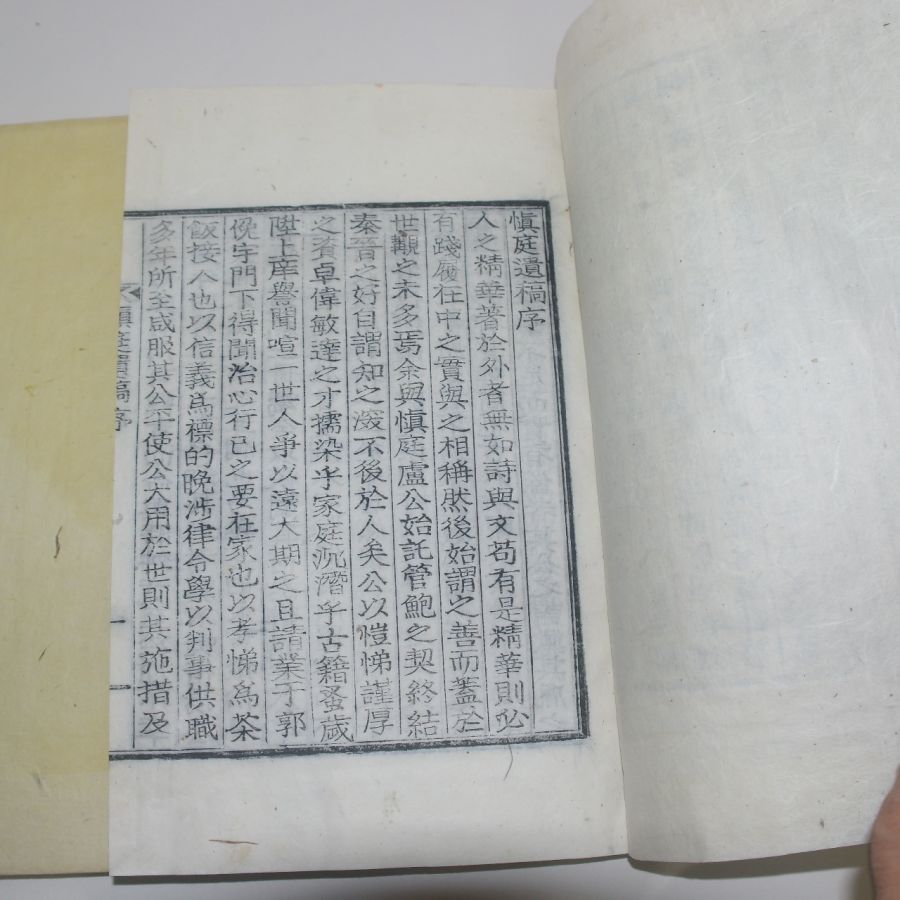 愼庭遺稿序
人之精華著於外者無如詩與文苟有是精華則必
有踐履在中之實與之相稱然後始謂之善而蓋於
世觀之未多焉余與愼庭盧公始託管鮑之契終結
秦晉之好自謂知之深不後於人矣公以愷悌謹厚
之資卓偉敏達之才擩染乎家庭沉潛乎古籍蚤歲
陞上庠譽聞喧一世人爭以遠大期之且請業于郭
俛宇門下得聞治心行己之要在家也以孝悌爲茶
飯接人也以信義爲標的晩涉律令學以判事供職
多年所至咸服其公平使公大用於世則其施措及
愼庭遺稿序
一